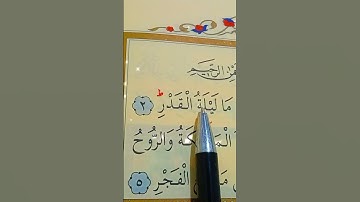 مٰنِ الرَّحِيْمِ
مَا لَيْلَةُ الْقَدْرِ ؕ ۝٢
الْمَلٰٓئِكَةُ وَالرُّوْحُ
الْفَجْرِ ۝٥